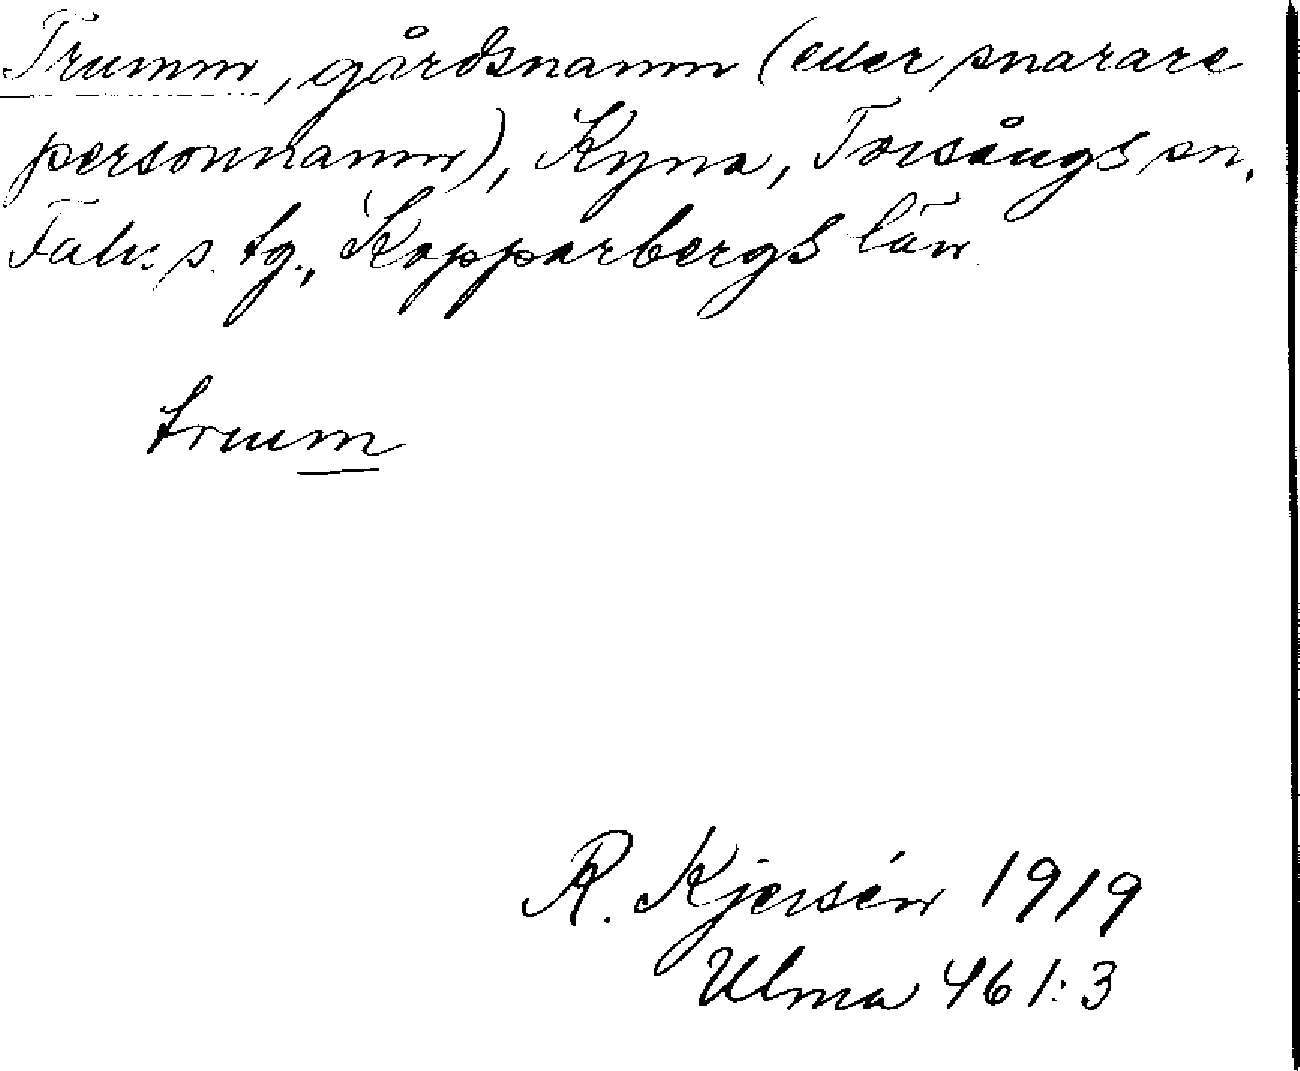 Trumm, gårdsnamn (eller snarare
personnamn), Kyna, Torsångs sn.
Falu s. tg., Kopparbergs län
trum
R. Kjersén 1919
Ulma 461:3